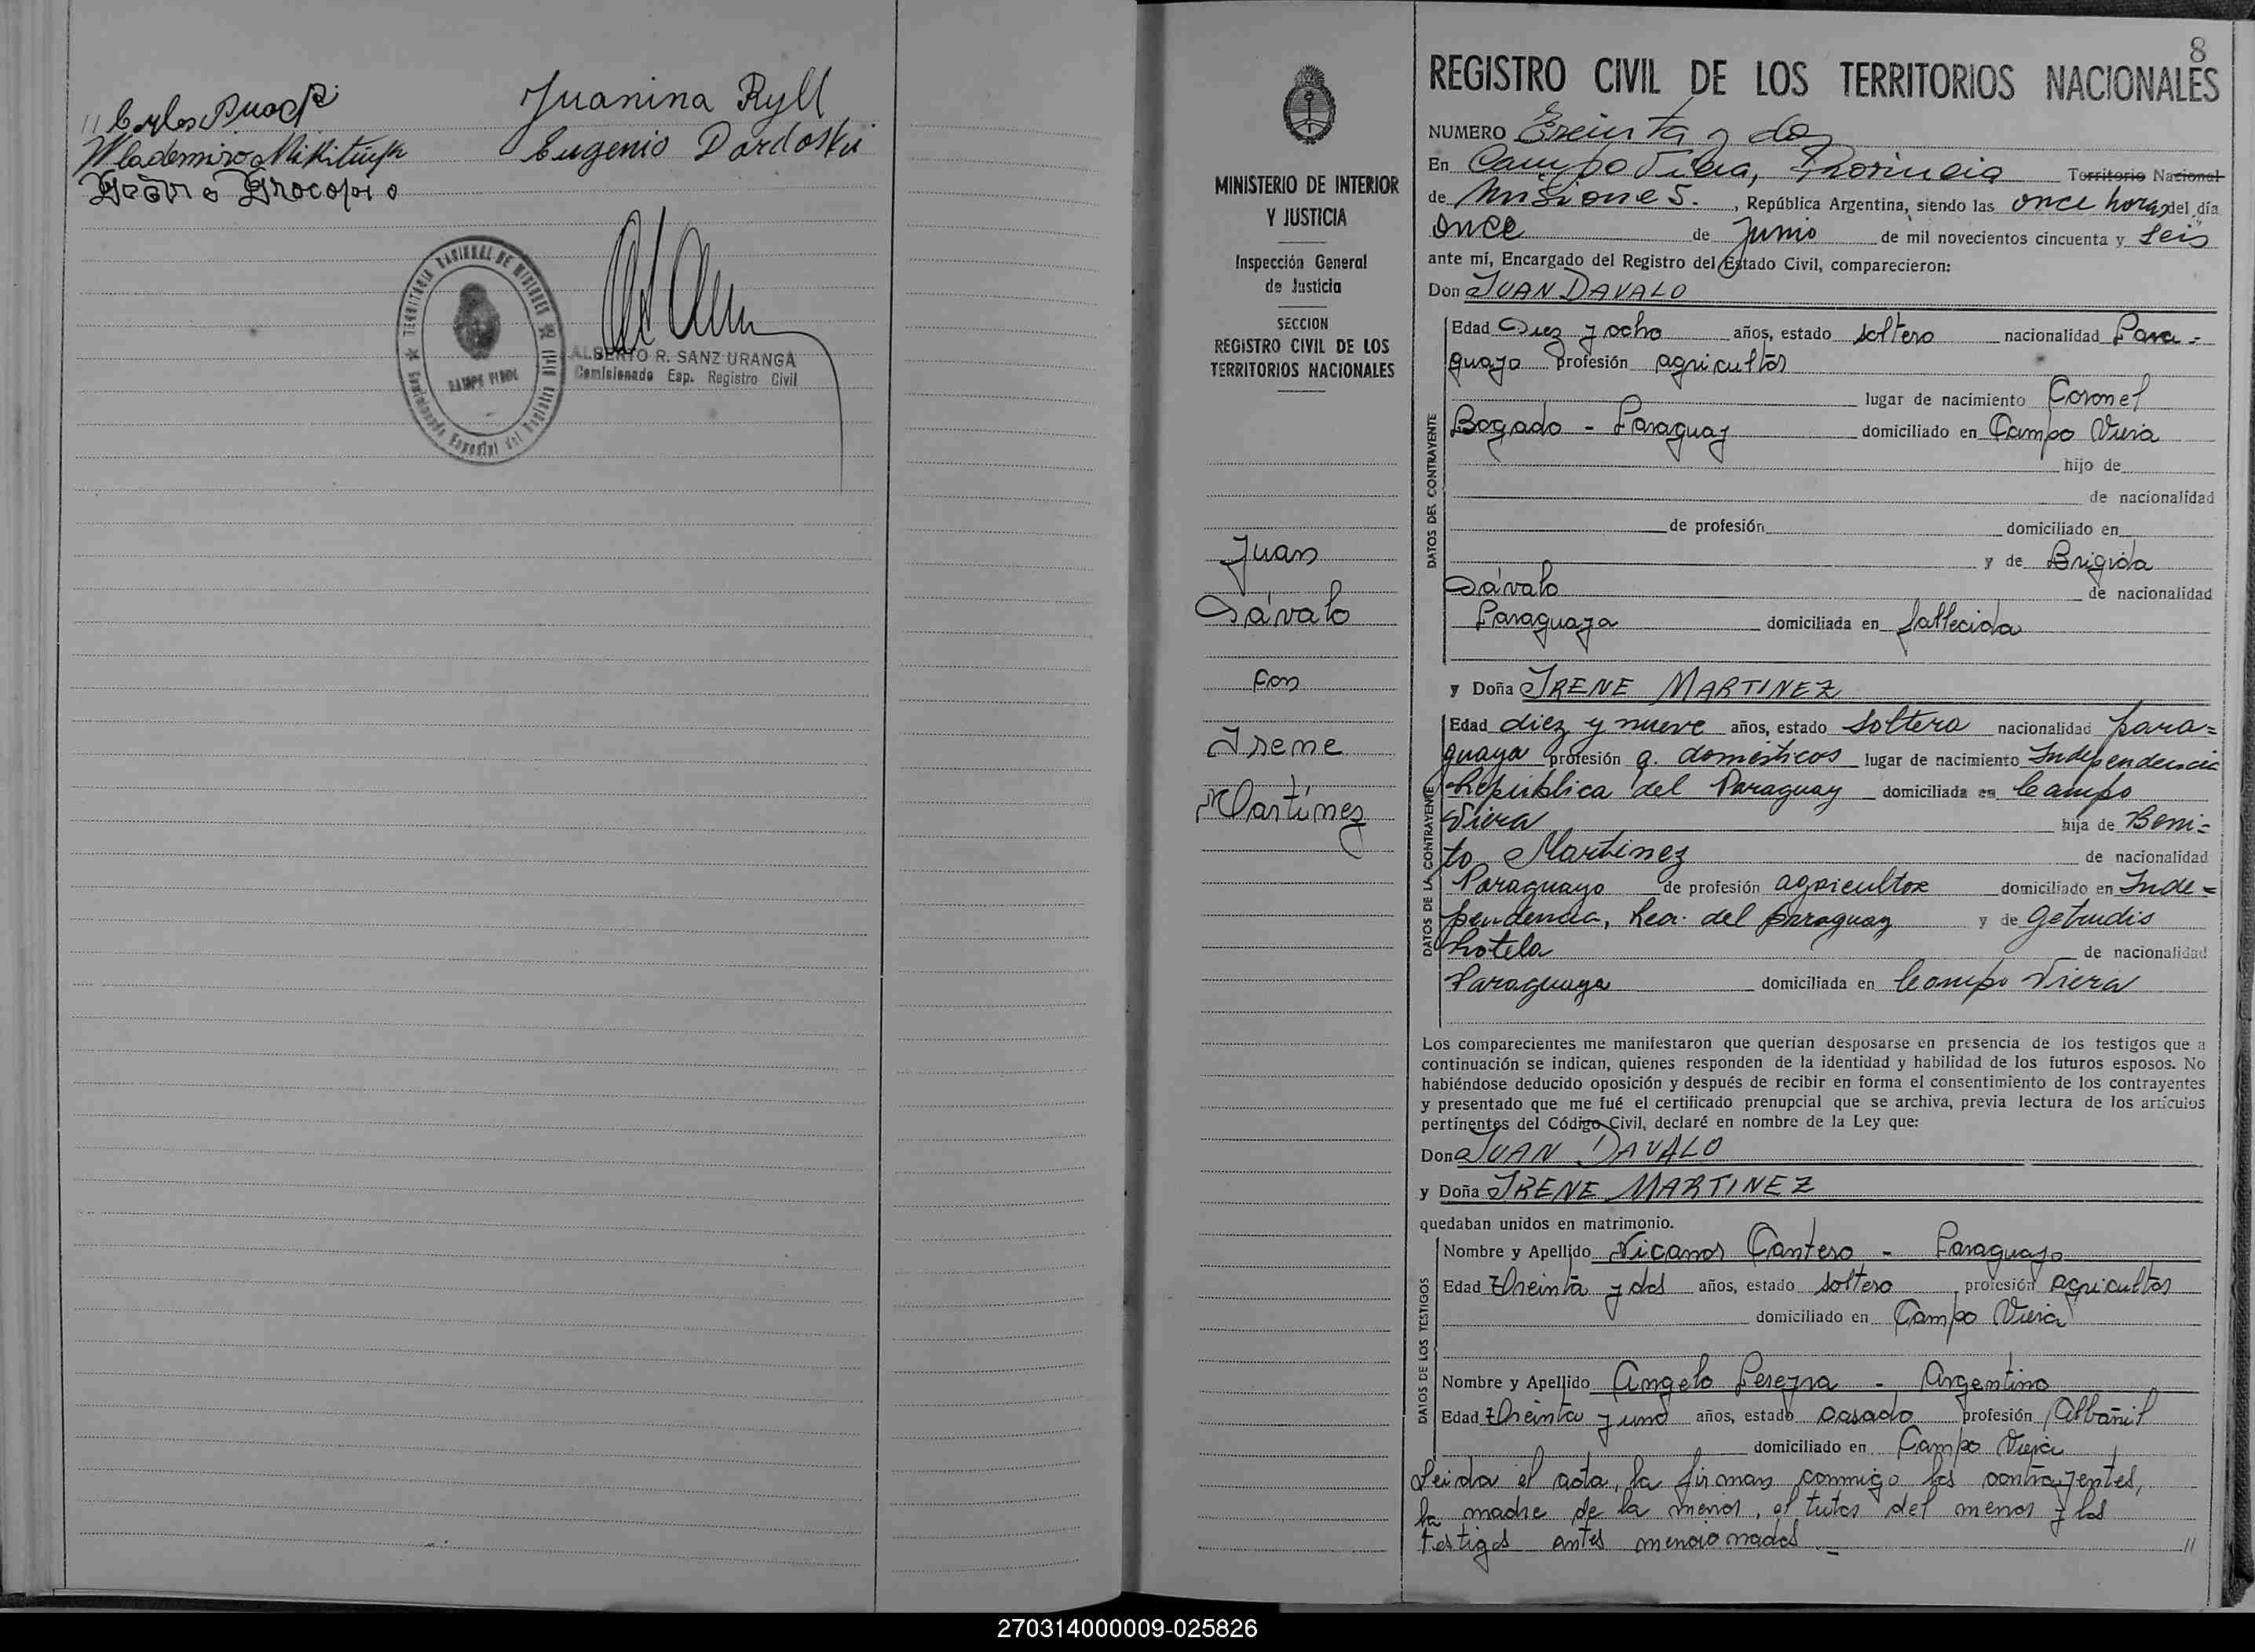 Juanina Ryll
// Carlos
Wlademiro Mikitiuk Eugenio Dardoski
Procopio
TERRITORIO NACIONAL DE MISIONES
CAMPO VIERA
Comisionado Especial del Registro Civil
ALBERTO R. SANZ URANGA
Comisionado Esp. Registro Civil
MINISTERIO DE INTERIOR
Y JUSTICIA
Inspección General
de Justicia
SECCION
REGISTRO CIVIL DE LOS
TERRITORIOS NACIONALES
Juan
Dávalo
con
Irene
Martínez
8
REGISTRO CIVIL DE LOS TERRITORIOS NACIONALES
NUMERO Treinta y dos
En Campo Viera, Provincia Territorio Nacional
de Misiones. , República Argentina, siendo las once horas del día
once de Junio de mil novecientos cincuenta y seis
ante mí, Encargado del Registro del Estado Civil, comparecieron:
Don JUAN DAVALO
DATOS DEL CONTRAYENTE
Edad Diez y ocho años, estado soltero nacionalidad Para-
guayo profesión agricultor
lugar de nacimiento Coronel
Bogado - Paraguay domiciliado en Campo Viera
hijo de
de nacionalidad
de profesión domiciliado en
y de Brigida
Dávalo de nacionalidad
Paraguaya domiciliada en fallecida
y Doña IRENE MARTINEZ
DATOS DE LA CONTRAYENTE
Edad diez y nueve años, estado soltera nacionalidad para=
guaya profesión q. domésticos lugar de nacimiento Independencia
República del Paraguay domiciliada en Campo
Viera hija de Beni=
to Martinez de nacionalidad
Paraguayo de profesión agricultor domiciliado en Inde=
pendencia, Rca. del Paraguay y de Getrudis
Rotela de nacionalidad
Paraguaya domiciliada en Campo Viera
Los comparecientes me manifestaron que querían desposarse en presencia de los testigos que a
continuación se indican, quienes responden de la identidad y habilidad de los futuros esposos. No
habiéndose deducido oposición y después de recibir en forma el consentimiento de los contrayentes
y presentado que me fué el certificado prenupcial que se archiva, previa lectura de los artículos
pertinentes del Código Civil, declaré en nombre de la Ley que:
Don JUAN DAVALO
y Doña IRENE MARTINEZ
quedaban unidos en matrimonio.
DATOS DE LOS TESTIGOS
Nombre y Apellido Nicanor Cantero - Paraguayo
Edad Treinta y dos años, estado soltero profesión agricultor
domiciliado en Campo Viera
Nombre y Apellido Angelo Pereyra - Argentino
Edad Treinta y uno años, estado casado profesión Albañil
domiciliado en Campo Viera
Leida el acta, la firman conmigo los contrayentes,
la madre de la menor, el tutor del menor y los
testigos antes mencionados. — //
270314000009-025826